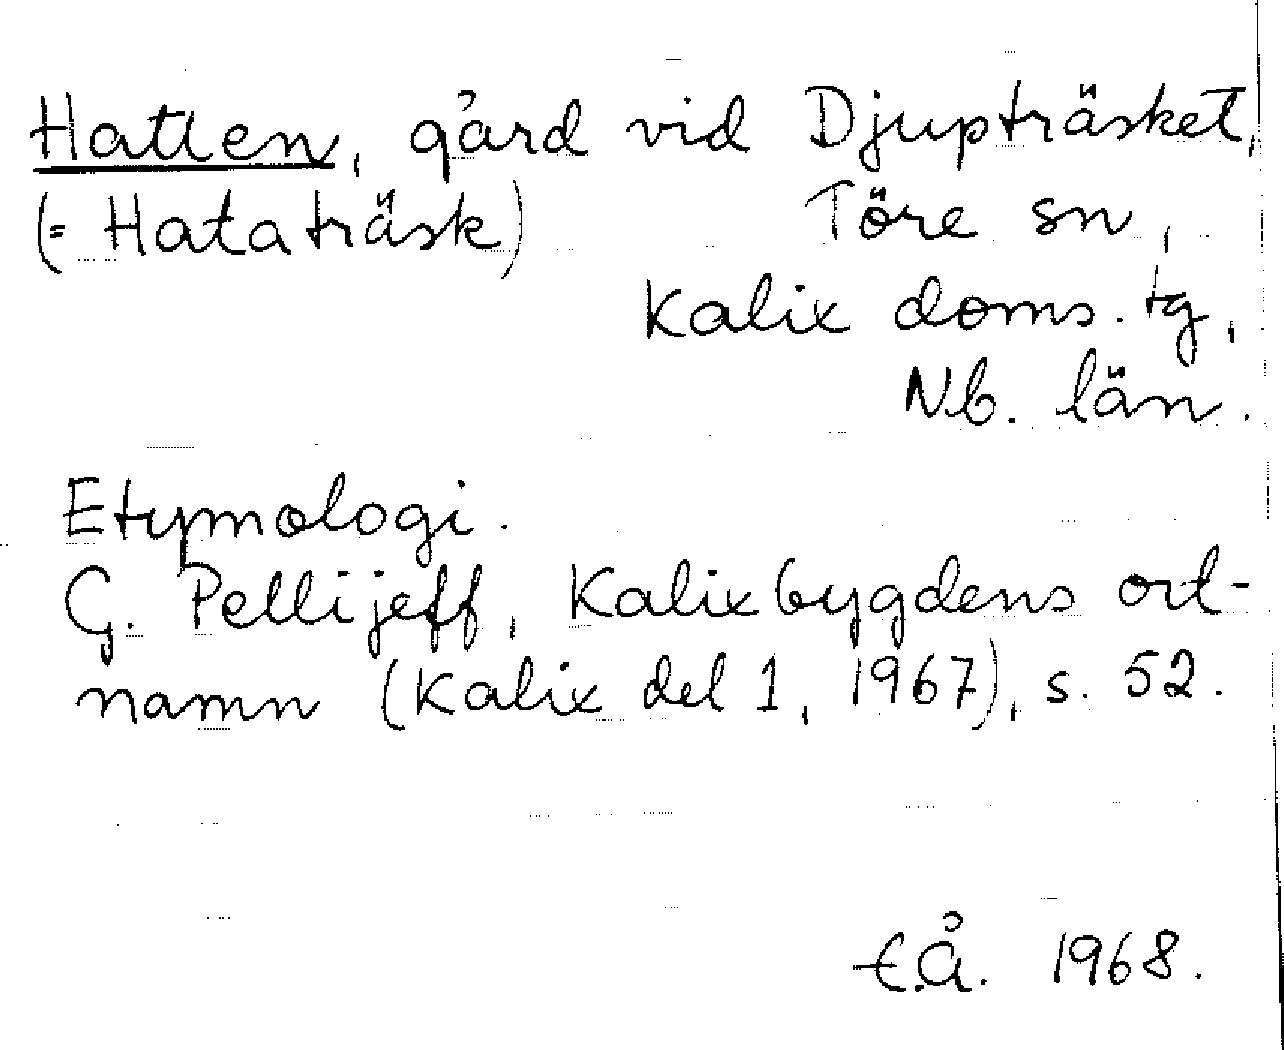 Hatten, gård vid Djupträsket,
(= Hataträsk) Töre sn,
Kalix doms. tg,
Nb. län.
Etymologi.
G. Pellijeff, Kalixbygdens ort-
namn (Kalix del 1, 1967), s. 52.
E.Å. 1968.